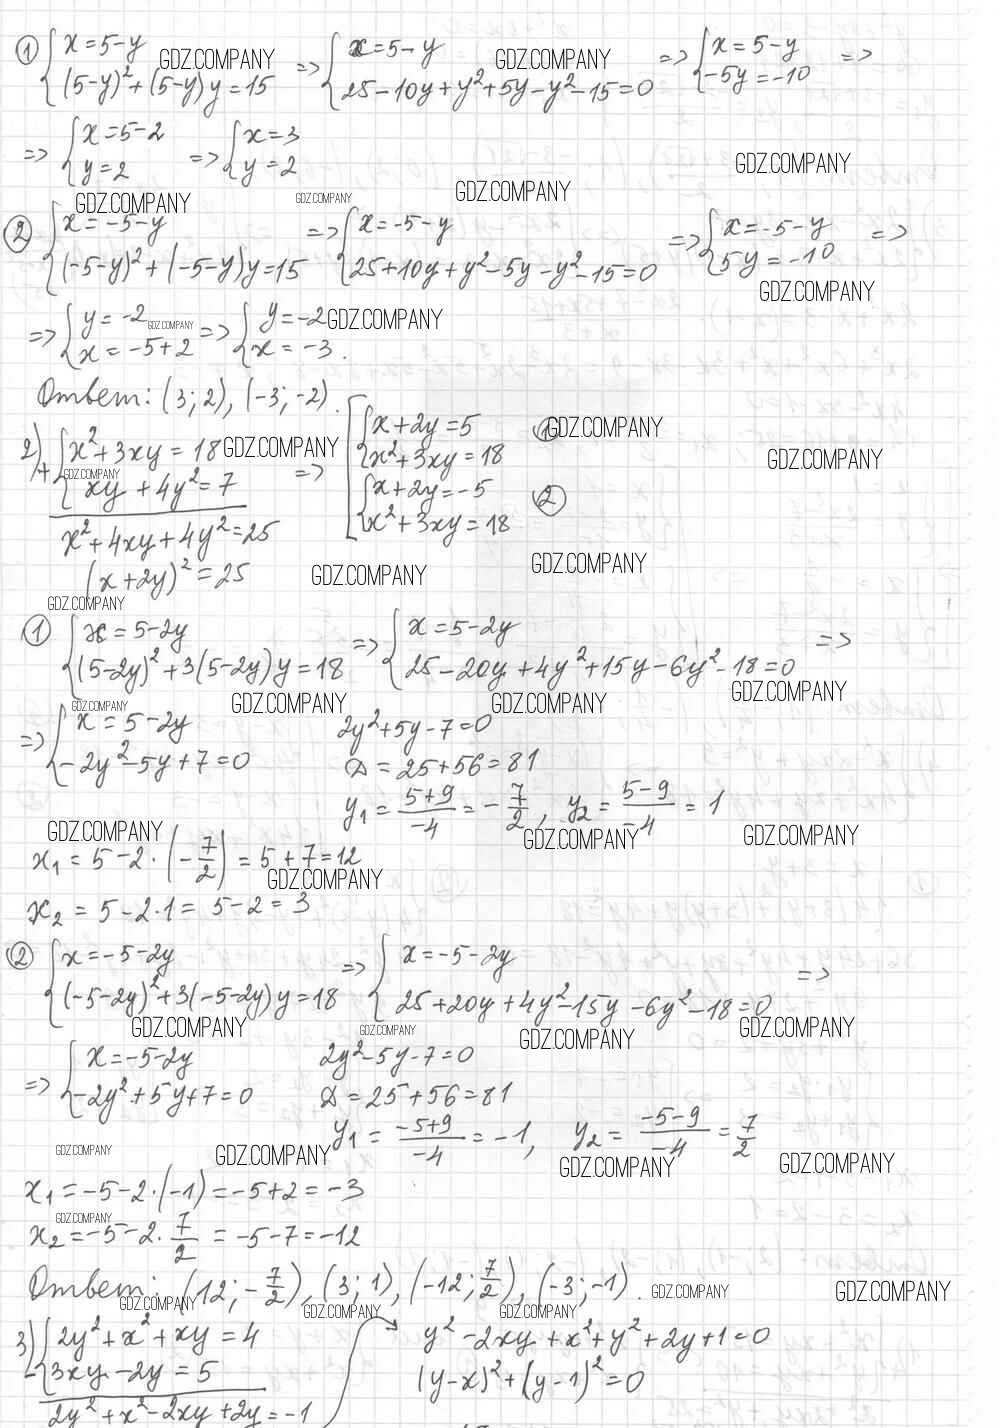 ① { x = 5 - y => { x = 5 - y => { x = 5 - y =>
(5-y)² + (5-y)y = 15   25 - 10y + y² + 5y - y² - 15 = 0   -5y = -10
GDZ.COMPANY GDZ.COMPANY
=> { x = 5 - 2 => { x = 3
y = 2   y = 2
GDZ.COMPANY
GDZ.COMPANY GDZ.COMPANY GDZ.COMPANY
② { x = -5 - y => { x = -5 - y => { x = -5 - y =>
(-5-y)² + (-5-y)y = 15   25 + 10y + y² - 5y - y² - 15 = 0   5y = -10
GDZ.COMPANY
=> { y = -2 => { y = -2
x = -5 + 2   x = -3.
GDZ.COMPANY GDZ.COMPANY
Ответ: (3; 2), (-3; -2).
2) + { x² + 3xy = 18 => [ { x + 2y = 5 ①
xy + 4y² = 7   x² + 3xy = 18
x² + 4xy + 4y² = 25   { x + 2y = -5 ②
(x + 2y)² = 25   x² + 3xy = 18
GDZ.COMPANY GDZ.COMPANY GDZ.COMPANY
GDZ.COMPANY
GDZ.COMPANY GDZ.COMPANY
GDZ.COMPANY
① { x = 5 - 2y => { x = 5 - 2y =>
(5-2y)² + 3(5-2y)y = 18   25 - 20y + 4y² + 15y - 6y² - 18 = 0
GDZ.COMPANY GDZ.COMPANY GDZ.COMPANY GDZ.COMPANY
=> { x = 5 - 2y   2y² + 5y - 7 = 0
-2y² - 5y + 7 = 0   D = 25 + 56 = 81
y₁ = (5+9)/-4 = -7/2, y₂ = (5-9)/-4 = 1
GDZ.COMPANY GDZ.COMPANY GDZ.COMPANY
x₁ = 5 - 2·(-7/2) = 5 + 7 = 12
GDZ.COMPANY
x₂ = 5 - 2·1 = 5 - 2 = 3
② { x = -5 - 2y => { x = -5 - 2y =>
(-5-2y)² + 3(-5-2y)y = 18   25 + 20y + 4y² - 15y - 6y² - 18 = 0
GDZ.COMPANY GDZ.COMPANY GDZ.COMPANY GDZ.COMPANY
=> { x = -5 - 2y   2y² - 5y - 7 = 0
-2y² + 5y + 7 = 0   D = 25 + 56 = 81
y₁ = (-5+9)/-4 = -1, y₂ = (-5-9)/-4 = 7/2
GDZ.COMPANY GDZ.COMPANY GDZ.COMPANY GDZ.COMPANY
x₁ = -5 - 2·(-1) = -5 + 2 = -3
GDZ.COMPANY
x₂ = -5 - 2·7/2 = -5 - 7 = -12
Ответ: (12; -7/2), (3; 1), (-12; 7/2), (-3; -1).
GDZ.COMPANY GDZ.COMPANY
GDZ.COMPANY GDZ.COMPANY GDZ.COMPANY
3) - { 2y² + x² + xy = 4   y² - 2xy + x² + y² + 2y + 1 = 0
3xy - 2y = 5   (y-x)² + (y-1)² = 0
2y² + x² - 2xy + 2y = -1